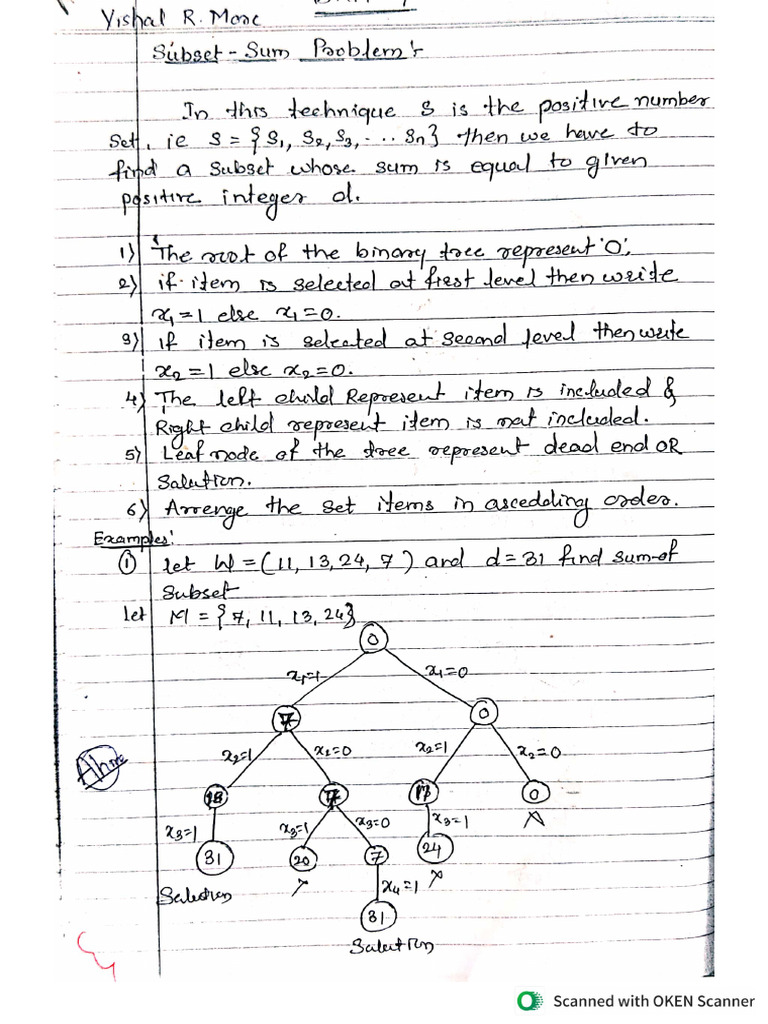 Vishal R. More
Subset - Sum Problem :-
In this technique S is the positive number
Set, ie S = {S1, S2, S3, ... Sn} then we have to
find a subset whose sum is equal to given
positive integer d.
1) The root of the binary tree represent '0'.
2) if item is selected at first level then write
x1 = 1 else x1 = 0.
3) if item is selected at second level then write
x2 = 1 else x2 = 0.
4) The left child Represent item is included &
Right child represent item is not included.
5) Leaf node of the tree represent dead end OR
Salution.
6) Arrenge the set items in ascedding order.
Examples:
① let W = (11, 13, 24, 7) and d = 31 find sum-of
Subset
let M = {7, 11, 13, 24}
0
x1=1 x1=0
7 0
x2=1 x2=0 x2=1 x2=0
18 7 11 0
x3=1 x3=1 x3=0 x3=1
31 20 7 24
x4=1
Salution
31
Salution
Scanned with OKEN Scanner